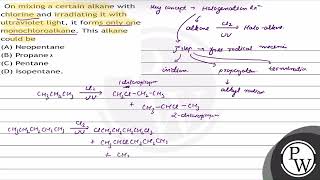 On mixing a certain alkane with
chlorine and irradiating it with
ultraviolet light, it forms only one
monochloroalkane. This alkane
could be
(A) Neopentane
(B) Propane x
(C) Pentane
(D) Isopentane.
Key concept → Halogenation Rxn
alkane Cl2 UV Halo alkane
3-step → free radical
initiation propagation termination
alkyl radical
CH3CH2CH3 Cl2 UV CH2Cl-CH2-CH3
1 chloropropane
+
CH3-CHCl-CH3
2-chloropropane
CH3CH2CH2CH2CH3 Cl2 UV
+ CH3CHClCH2CH2CH3
+ CH3
PW